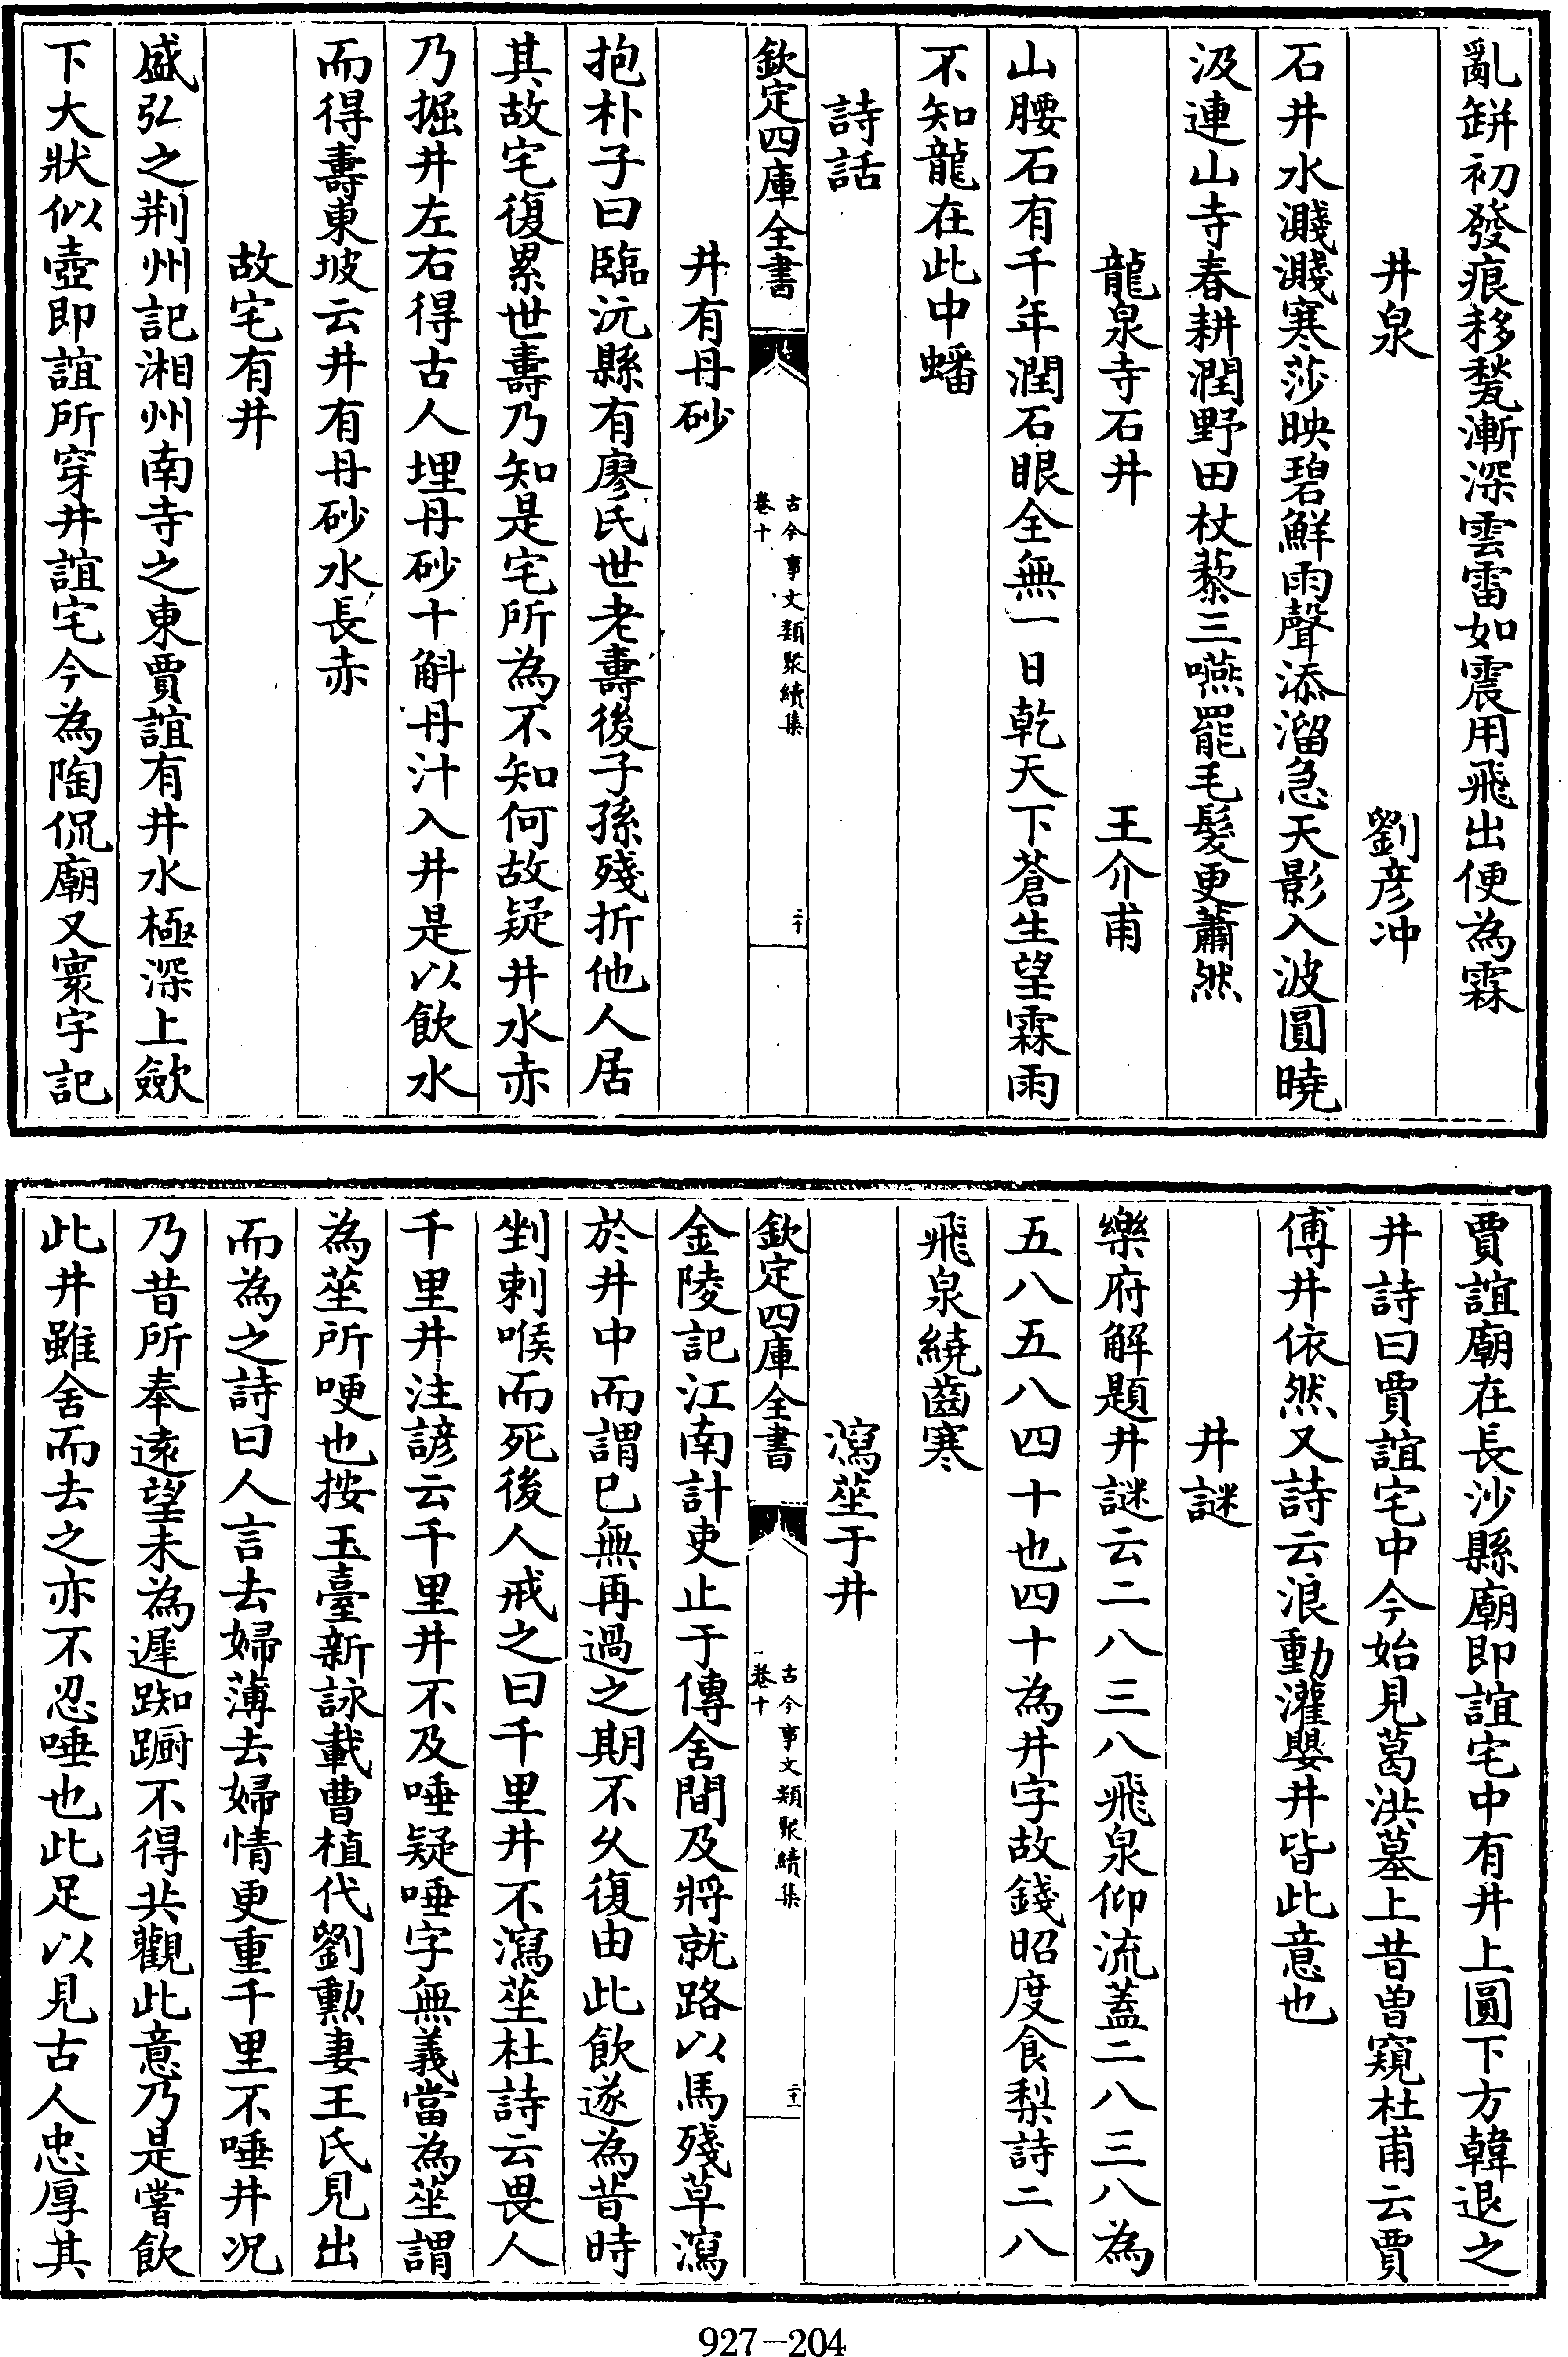 亂缾初發痕移甃漸深雲雷如震用飛出便為霖
井泉　劉彦冲
石井水濺濺寒莎映碧鮮雨聲添溜急天影入波圓曉
汲連山寺春耕潤野田杖藜三嚥罷毛髮更蕭然
龍泉寺石井　王介甫
山腰石有千年潤石眼全無一日乾天下蒼生望霖雨
不知龍在此中蟠
詩話
欽定四庫全書　古今事文類聚續集　卷十　二十
井有丹砂
抱朴子曰臨沅縣有廖氏世老壽後子孫殘折他人居
其故宅復累世壽乃知是宅所為不知何故疑井水赤
乃掘井左右得古人埋丹砂十斛丹汁入井是以飲水
而得壽東坡云井有丹砂水長赤
故宅有井
盛弘之荆州記湘州南寺之東賈誼有井水極深上歛
下大狀似壺即誼所穿井誼宅今為陶侃廟又寰宇記
賈誼廟在長沙縣廟即誼宅中有井上圓下方韓退之
井詩曰賈誼宅中今始見葛洪墓上昔曽窺杜甫云賈
傅井依然又詩云浪動灌嬰井皆此意也
井謎
樂府解題井謎云二八三八飛泉仰流蓋二八三八為
五八五八四十也四十為井字故錢昭度食梨詩二八
飛泉繞齒寒
瀉莝于井
欽定四庫全書　古今事文類聚續集　卷十　二十一
金陵記江南計吏止于傳舍間及將就路以馬殘草瀉
於井中而謂已無再過之期不久復由此飲遂為昔時
剉刺喉而死後人戒之曰千里井不瀉莝杜詩云畏人
千里井注諺云千里井不及唾疑唾字無義當為莝謂
為莝所哽也按玉臺新詠載曹植代劉勲妻王氏見出
而為之詩曰人言去婦薄去婦情更重千里不唾井况
乃昔所奉遠望未為遲踟蹰不得共觀此意乃是嘗飲
此井雖舍而去之亦不忍唾也此足以見古人忠厚其
927-204